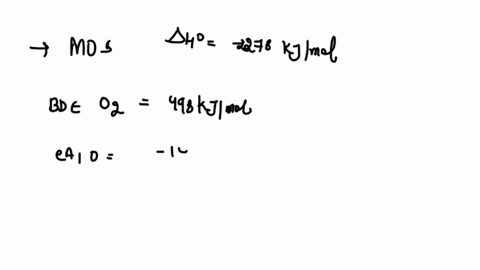 → MOs ΔH° = -2278 KJ/mol
BDE O2 = 498 KJ/mol
eA, O = -14